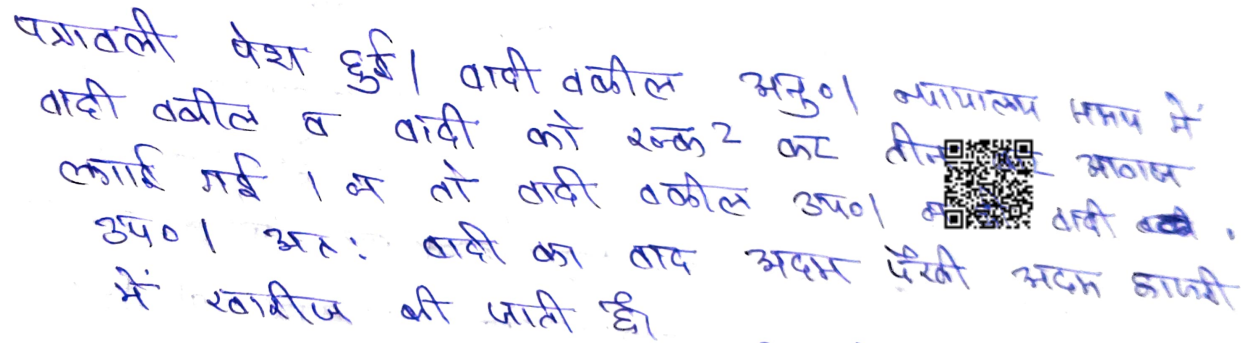 पत्रावली पेश हुई। वादी वकील अनु०। न्यायालय समय में
वादी वकील व वादी को रुक २ कर तीन आवाज
लगाई गई । न तो वादी वकील उप०। वादी
उप०। अतः वादी का वाद अदम पैरवी अदम हाजरी
में खारीज की जाती है।